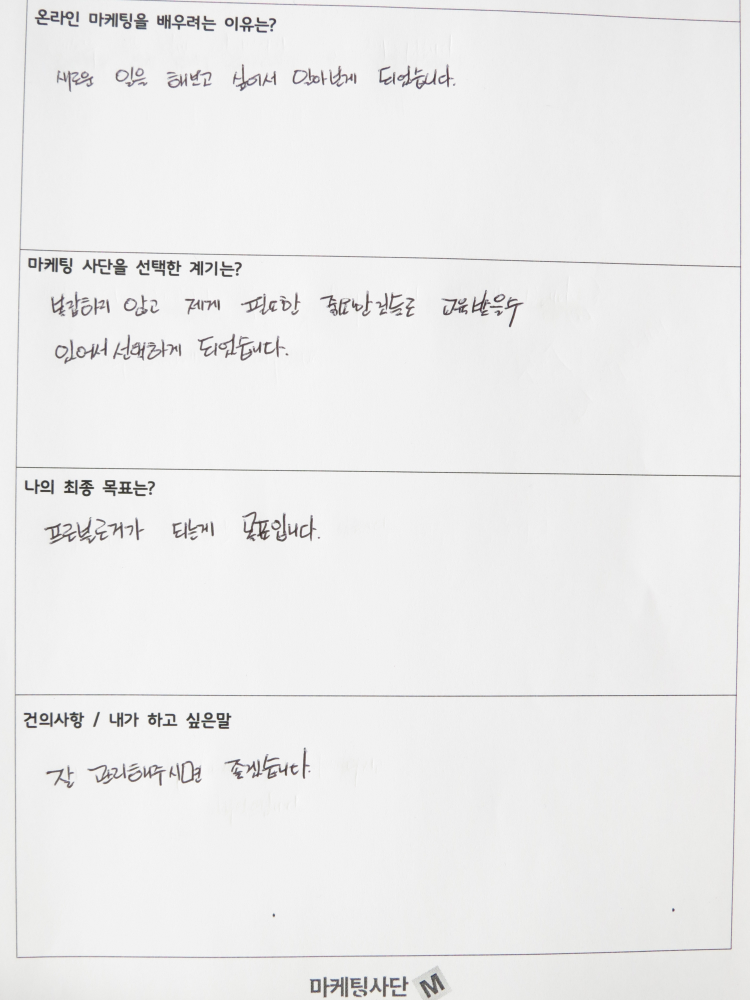 온라인 마케팅을 배우려는 이유는?
새로운 일을 해보고 싶어서 알아보게 되었습니다.
마케팅 사단을 선택한 계기는?
복잡하지 않고 제게 필요한 중요한것들로 교육받을수
있어서 선택하게 되었습니다.
나의 최종 목표는?
프로블로거가 되는게 목표입니다.
건의사항 / 내가 하고 싶은말
잘 관리해주시면 좋겠습니다.
마케팅사단 M